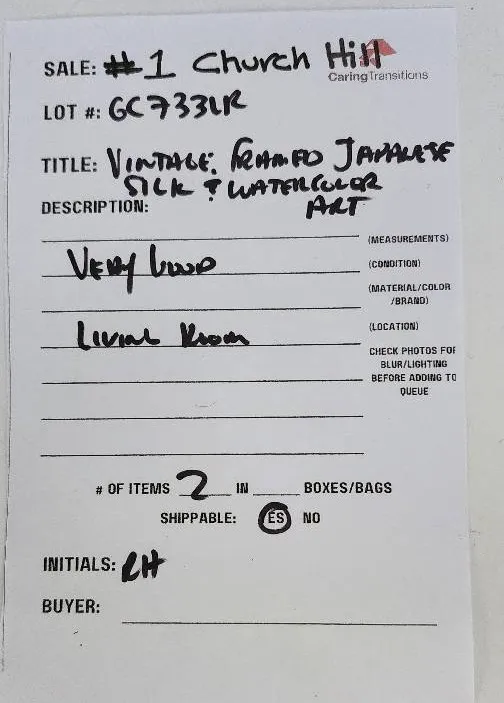 SALE: #1 Church Hill
CaringTransitions
LOT #: GC733LR
TITLE: VINTAGE FRAMED JAPANESE
SILK & WATERCOLOR
ART
DESCRIPTION:
(MEASUREMENTS)
VERY GOOD (CONDITION)
(MATERIAL/COLOR
/BRAND)
LIVING ROOM (LOCATION)
CHECK PHOTOS FOR
BLUR/LIGHTING
BEFORE ADDING TO
QUEUE
# OF ITEMS 2 IN BOXES/BAGS
SHIPPABLE: YES NO
INITIALS: RH
BUYER: